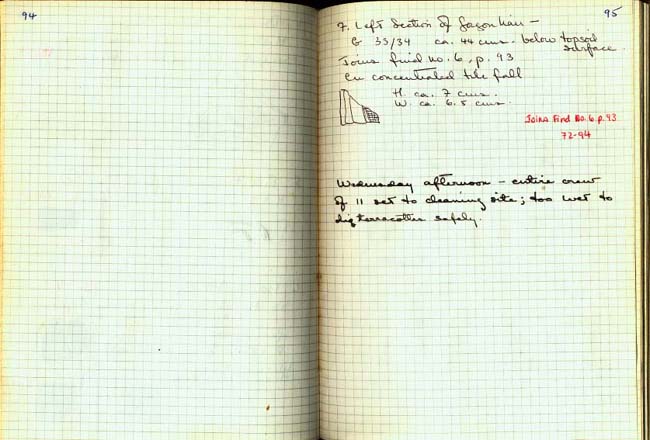 94
95
7. Left Section of Gorgon hair –
G 33/34 ca. 44 cms. below topsoil
surface
Joins find no. 6, p. 93
In concentrated tile fall
H. ca. 7 cms.
W. ca. 6.5 cms.
Joins Find No. 6. p. 93
72-94
Wednesday afternoon – entire crew
of 11 set to cleaning site; too wet to
dig terracottas safely.